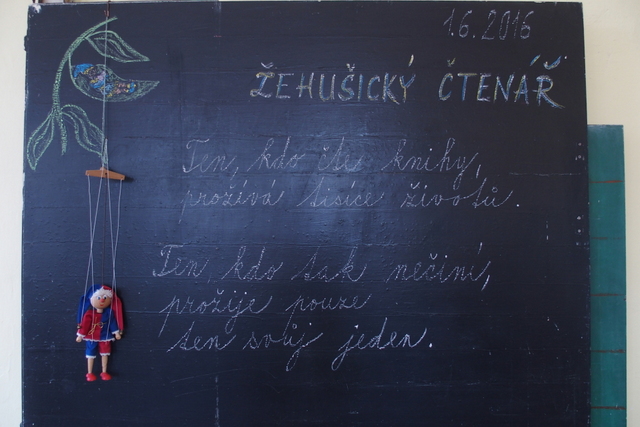 1.6.2016
ŽEHUŠICKÝ ČTENÁŘ
Ten, kdo čte knihy,
prožívá tisíce životů.
Ten, kdo tak nečiní,
prožije pouze
ten svůj jeden.